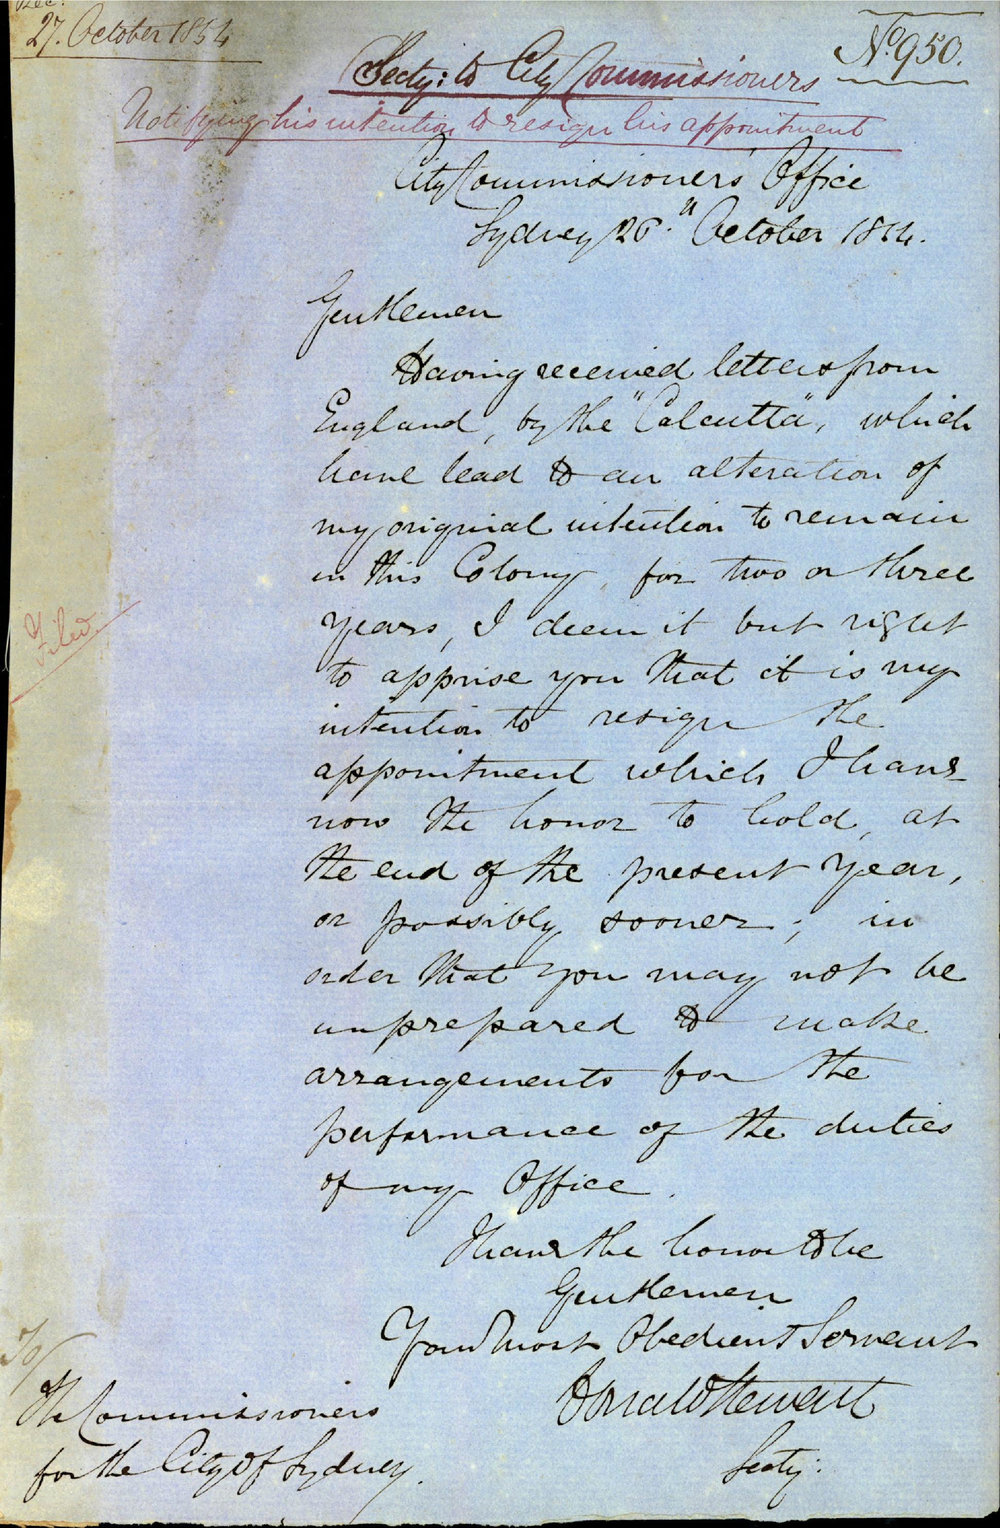 Rec:
27. October 1854
No. 950.
Secty: to City Commissioners
Notifying his intention to resign his appointment
City Commissioners' Office
Sydney 26." October 1854.
Gentlemen
Having received letters from
England, by the "Calcutta", which
have lead to an alteration of
my original intention to remain
in this Colony, for two or three
years, I deem it but right
to apprise you that it is my
intention to resign the
appointment which I have
now the honor to hold, at
the end of the present year,
or possibly sooner; in
order that you may not be
unprepared to make
arrangements for the
performance of the duties
of my Office.
I have the honor to be
Gentlemen
Your Most Obedient Servant
Donald Stewart
Secty:
Filed
To/
The Commissioners
for the City Of Sydney.